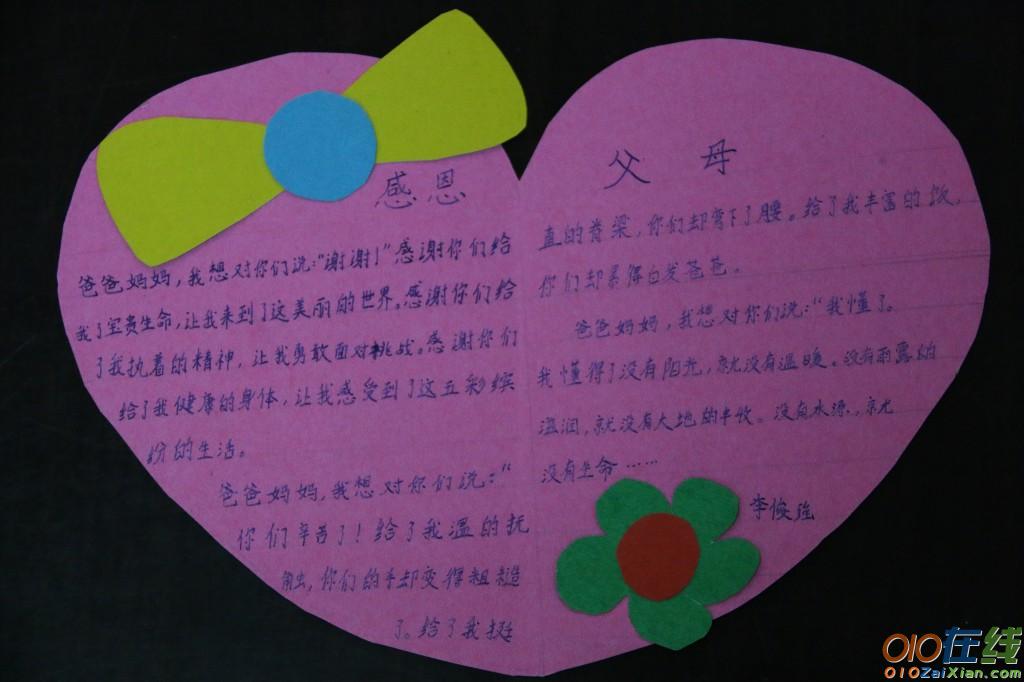 感恩
爸爸妈妈,我想对你们说:“谢谢!”感谢你们给
我了宝贵生命,让我来到了这美丽的世界。感谢你们给
了我执着的精神,让我勇敢面对挑战。感谢你们
给了我健康的身体,让我感受到了这五彩缤
纷的生活。
爸爸妈妈,我想对你们说:“
你们辛苦了!给了我温的抚
触,你们的手却变得粗糙
了。给了我挺
父母
直的脊梁,你们却弯下了腰。给了我丰富的饭,
你们却累得白发苍苍。
爸爸妈妈,我想对你们说:“我懂了。
我懂得了没有阳光,就没有温暖。没有雨露的
滋润,就没有大地的丰收。没有水源,就
没有生命……
李俊强
010在线
010ZaiXian.com